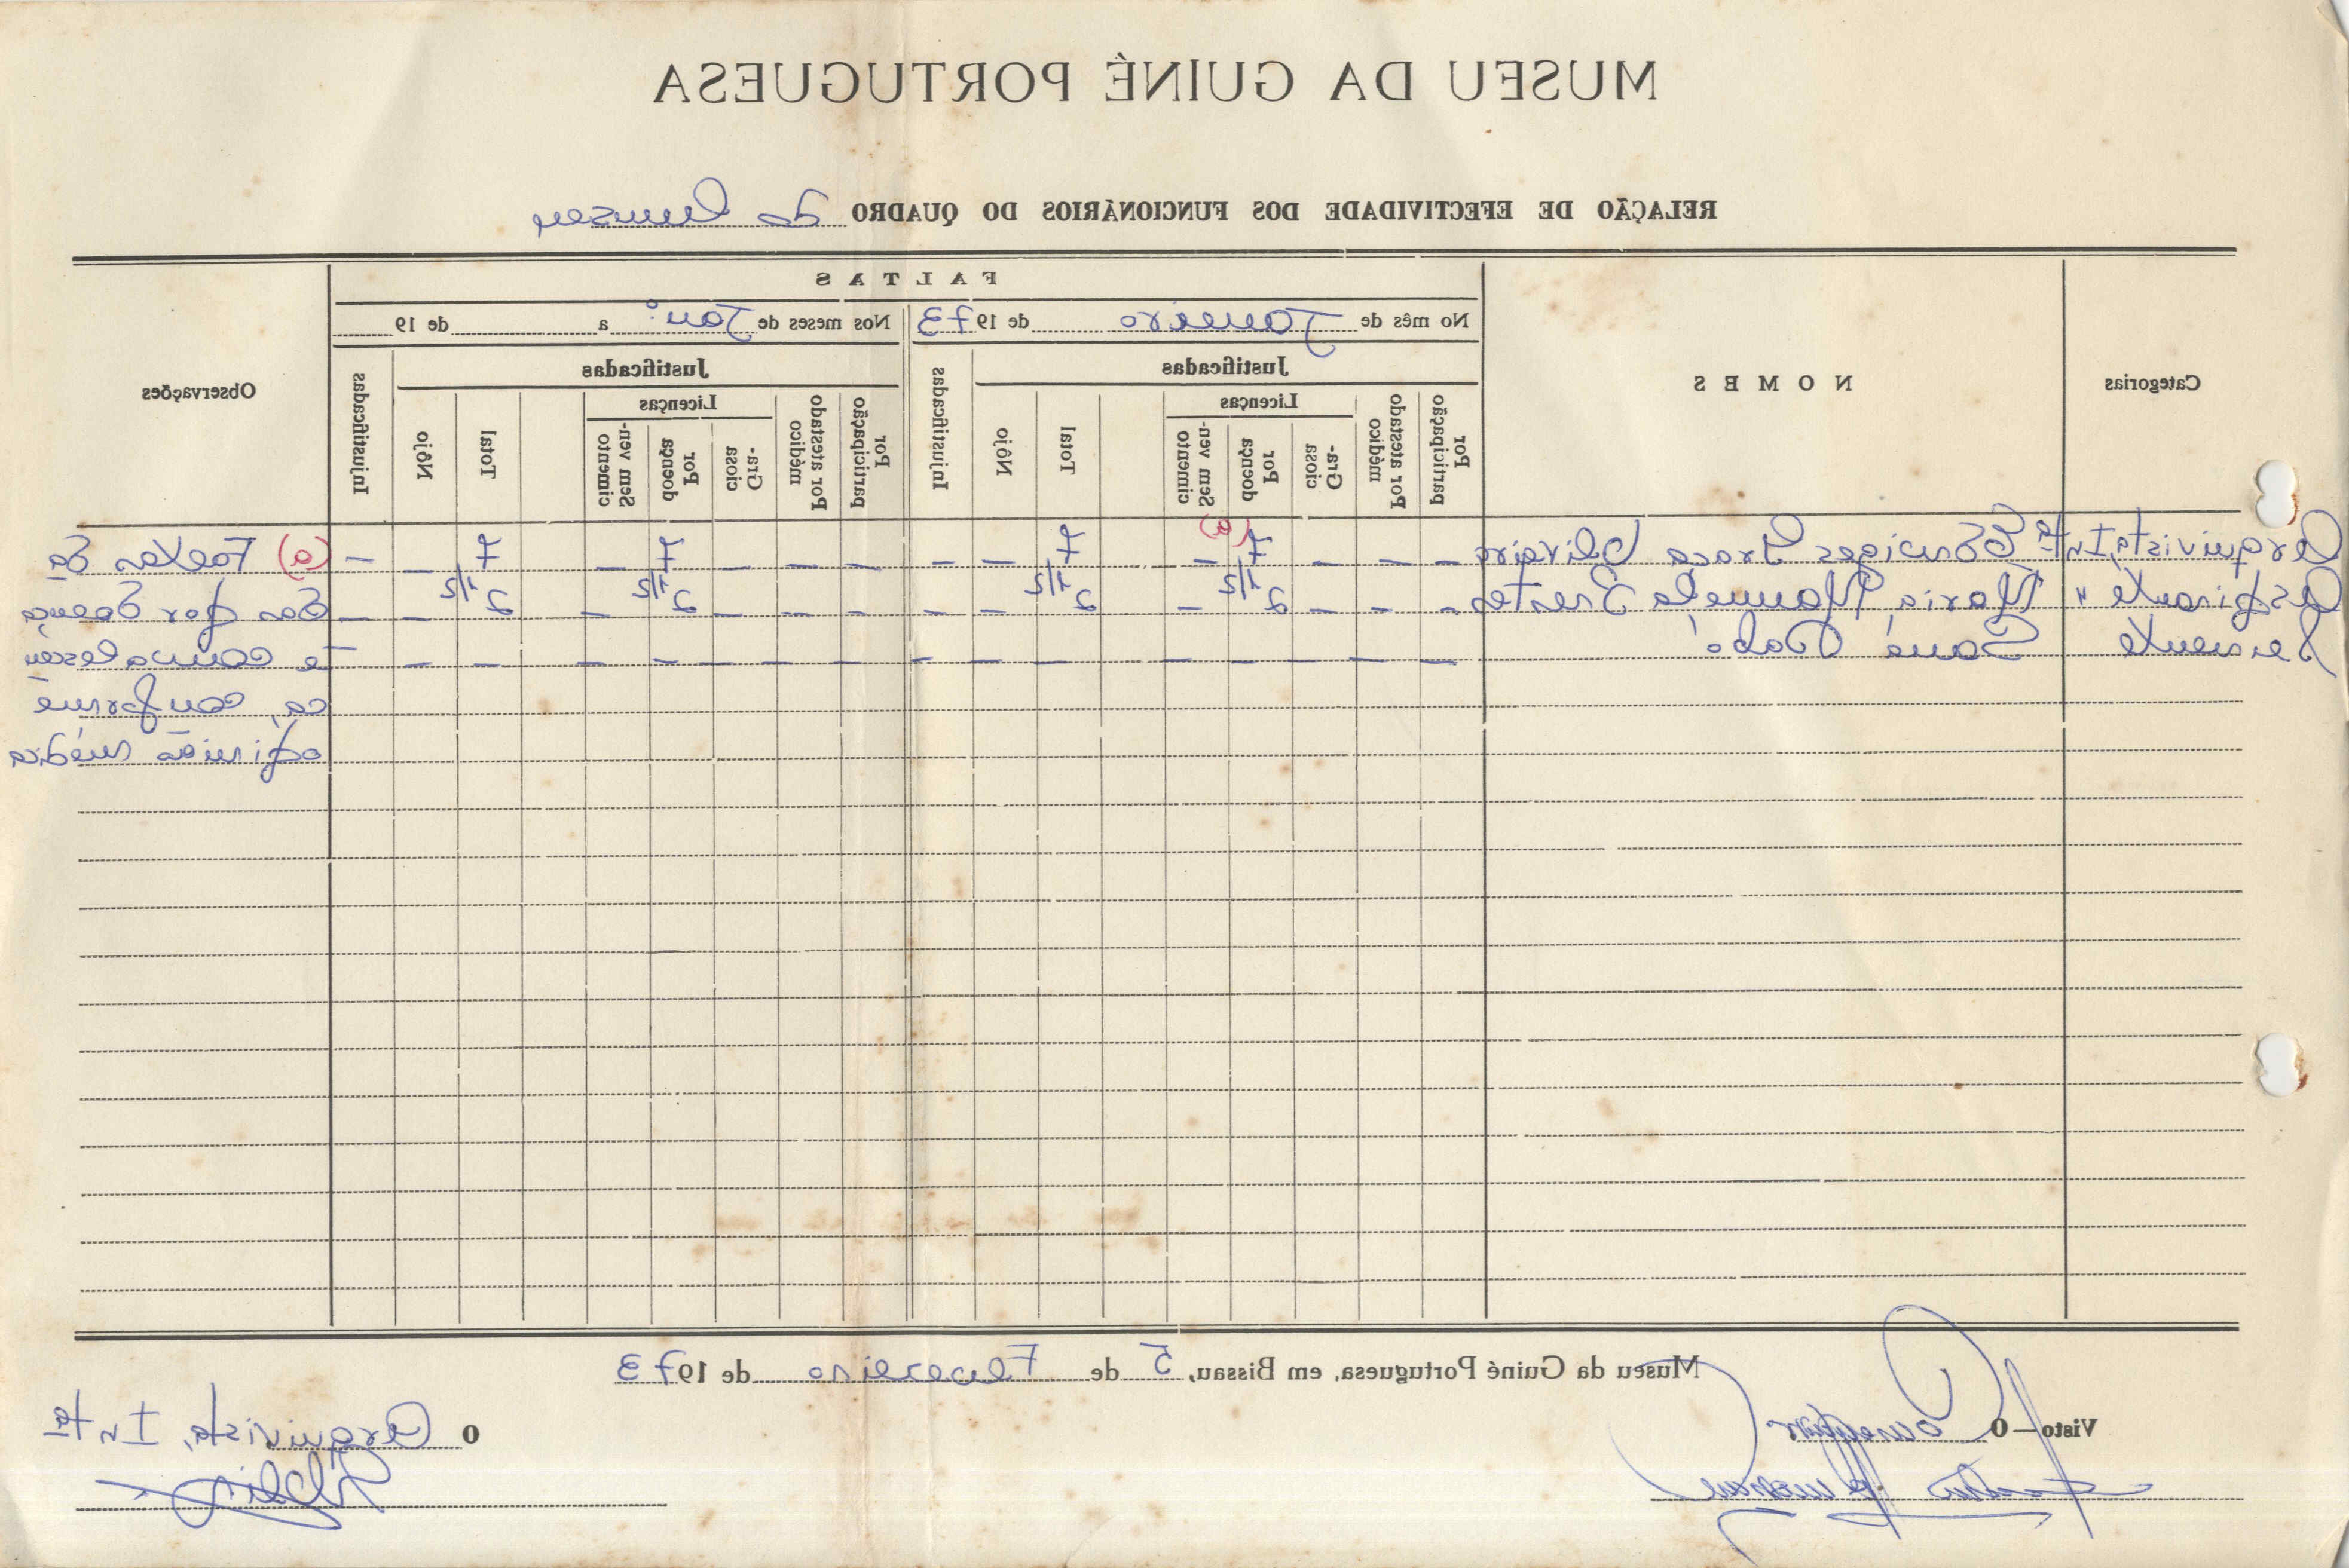 MUSEU DA GUINÉ PORTUGUESA
RELAÇÃO DE EFECTIVIDADE DOS FUNCIONÁRIOS DO QUADRO do museu
Categorias
N O M E S
F A L T A S
No mês de Janeiro de 1973
Nos meses de Jan.º a de 19
Observações
Justificadas
Injustificadas
Justificadas
Injustificadas
Licenças
Licenças
Por participação
Por atestado médico
Gra-ciosa
Por doença
Sem ven-cimento
Total
Nôjo
Por participação
Por atestado médico
Gra-ciosa
Por doença
Sem ven-cimento
Total
Nôjo
Arquivista, Intº Graça Oliveira — — — 7 (a) — 7 — — — — — 7 — 7 — — (a) Faltas de
Aspirante " Maria Manuela — — — 2 1/2 — 2 1/2 — — — — — 2 1/2 — 2 1/2 — — por doença
Servente — — — — — — — — — — — — — — e convalescen
ça, conforme
opinião médica
Museu da Guiné Portuguesa, em Bissau, 5 de Fevereiro de 1973
Visto—O
O Arquivista, Intº